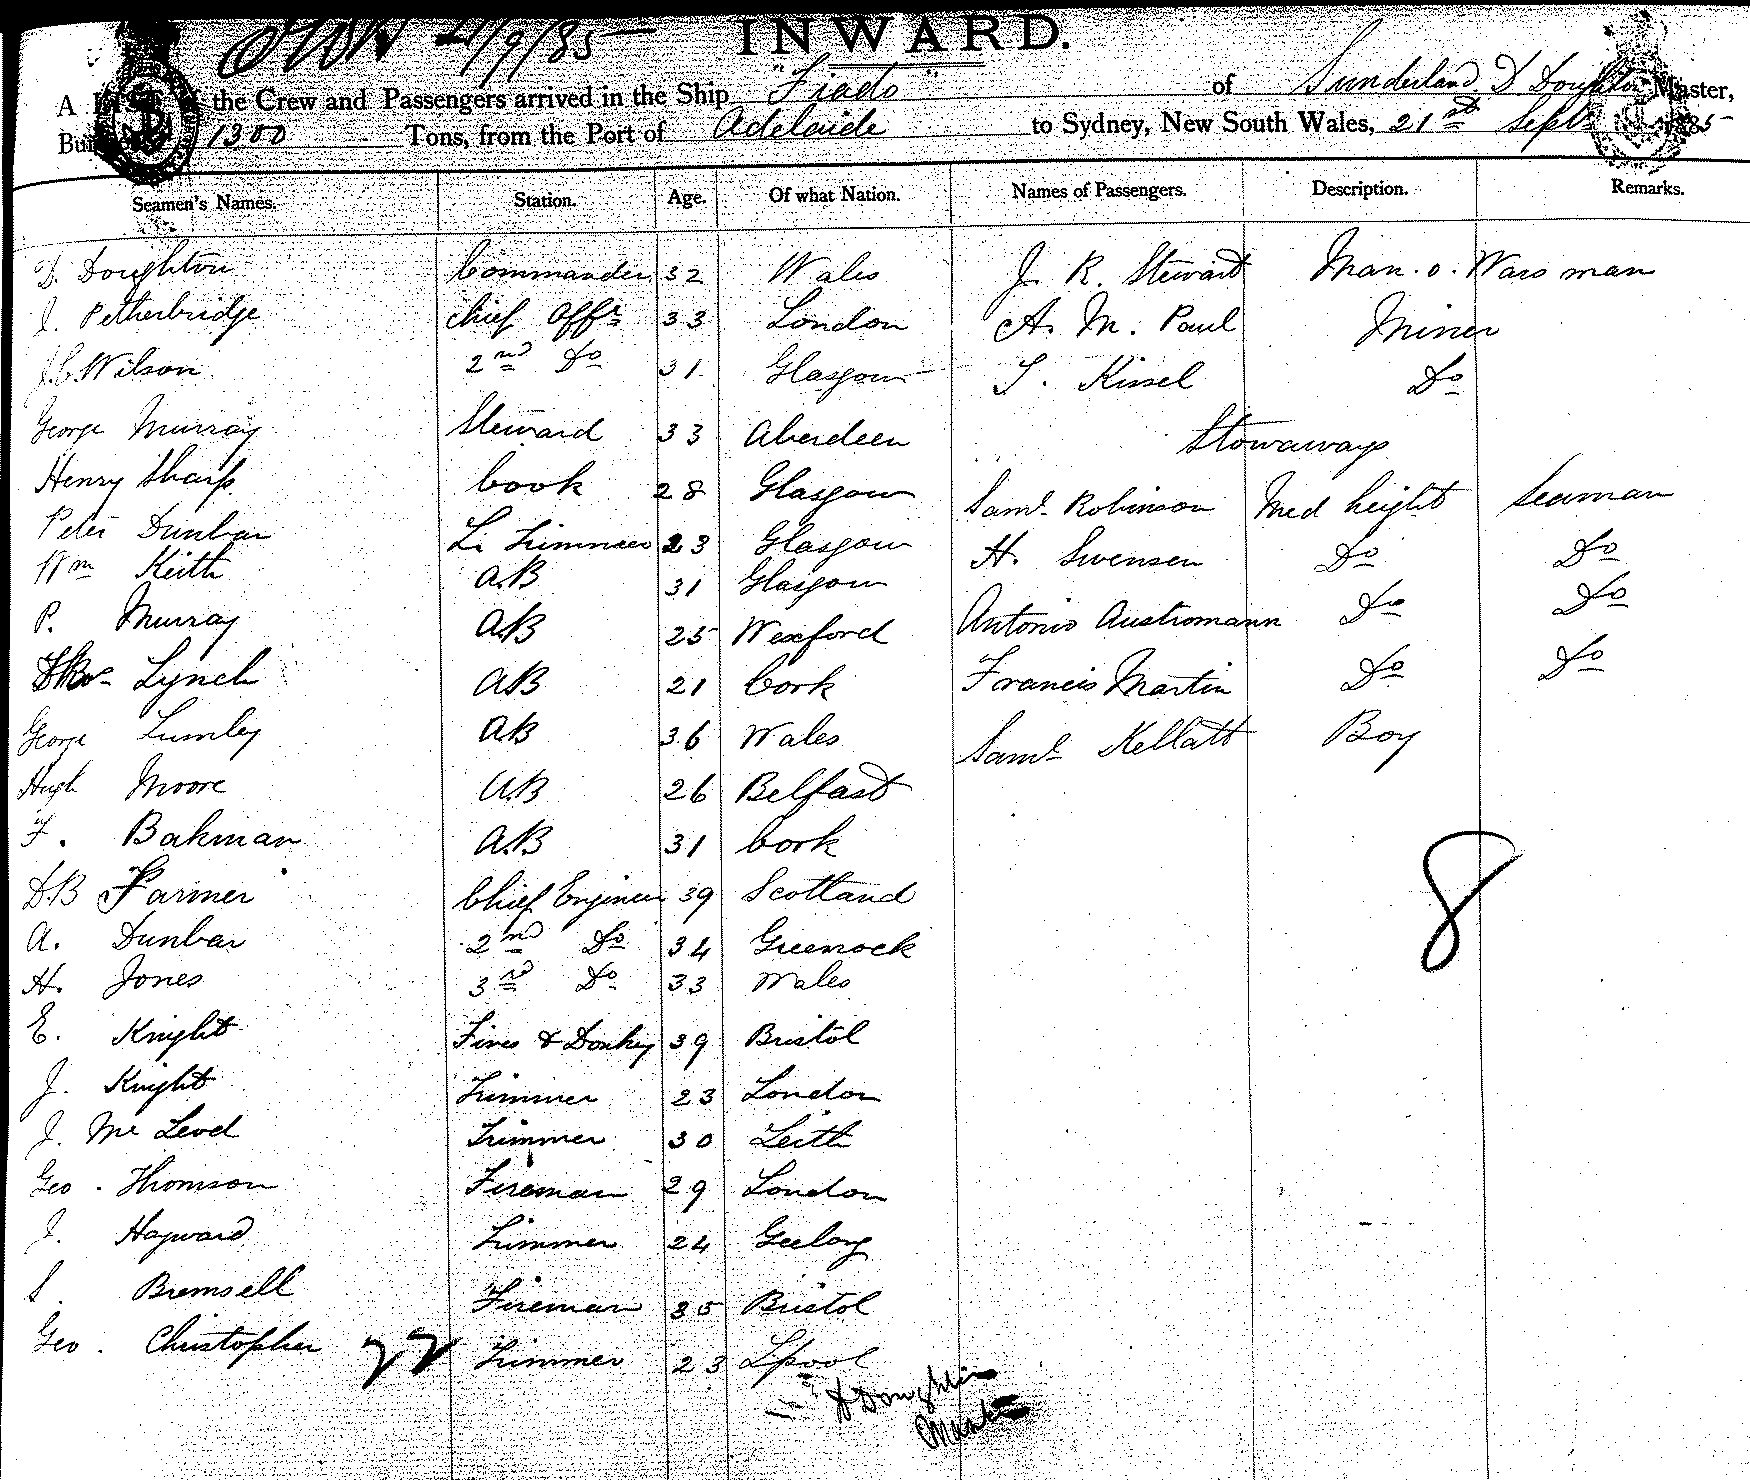 21/9/85
INWARD.
A the Crew and Passengers arrived in the Ship "Fiado" of Sunderland, D Doughton Master,
1300 Tons, from the Port of Adelaide to Sydney, New South Wales, 21st Sept 1885
Seamen's Names. Station. Age. Of what Nation. Names of Passengers. Description. Remarks.
D. Doughton Commander 32 Wales J. R. Stewart Man. o. Wars man
J. Petherbridge Chief Offr 33 London A. M. Paul Miner
J.C. Wilson 2nd Do 31 Glasgow S. Kissel Do
George Murray Steward 33 Aberdeen Stowaways
Henry Sharp Cook 28 Glasgow Saml Robinson Med height Seaman
Peter Dunbar Trimmer 23 Glasgow H. Swensen Do Do
Wm Keith A.B 31 Glasgow Antonio Austromann Do Do
P. Murray A.B 25 Wexford Francis Martin Do Do
Lynch A.B 21 Cork Saml Kellatt Boy
George Lumley A.B 36 Wales
Hugh Moore A.B 26 Belfast
F. Bakman A.B 31 Cork
D.B Farmer Chief Engineer 39 Scotland
A. Dunbar 2nd Do 34 Greenock
H. Jones 3rd Do 33 Wales
E. Knight Fires & Donkey 39 Bristol
J. Knight Trimmer 23 London
J. Mc Leod Trimmer 30 Leith
Geo. Thomson Fireman 29 London
J. Hayward Trimmer 24 Geelong
S. Bremsell Fireman 35 Bristol
Geo. Christopher 22 Trimmer 23 Lpool
8
D Doughton
Master